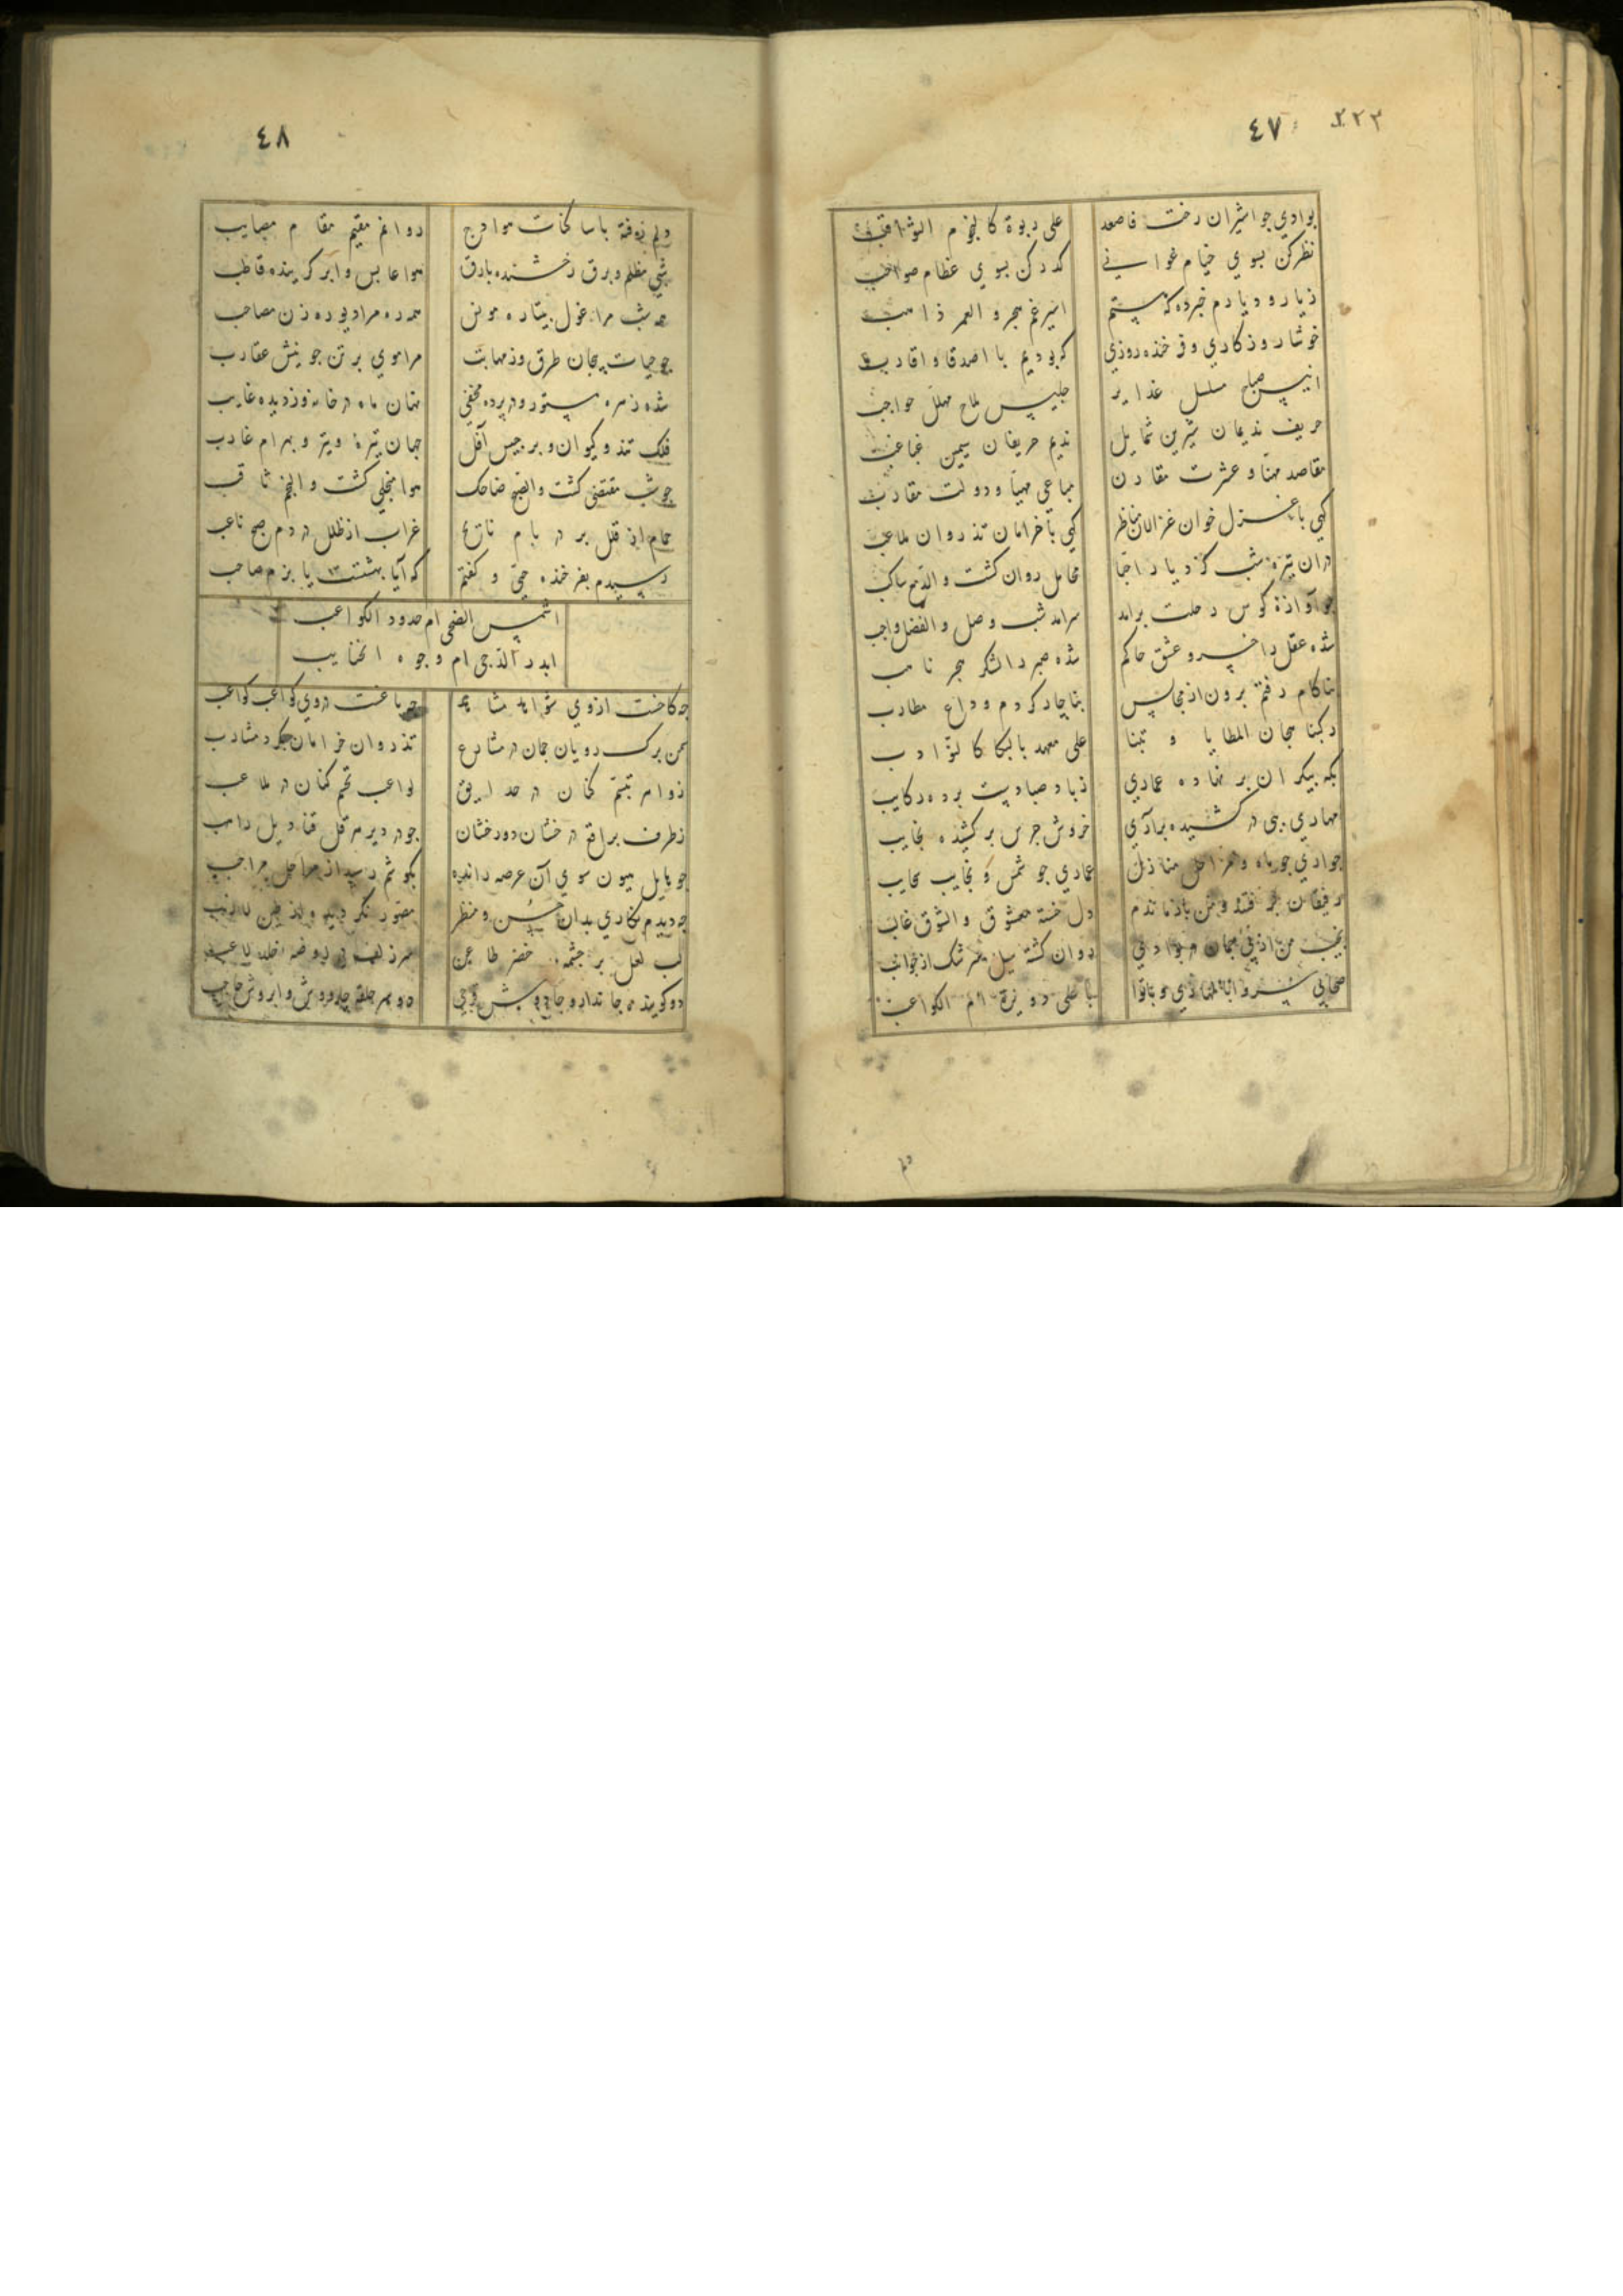 ٢٢٣
٤٧
بوادي جو اشیران رخت فاصعد
علی ربوة کالنجوم الثواقب
نظر کن بسوي خیام غوانی
کذر کن بسوي عظام صواحب
ز یار و دیارم خبر ده که هستم
اسیر غم هجر و العمر ذاهب
خوشا روزکاري و فرخنده روزي
که بودیم با اصدقا و اقارب
انیس صباح مسلسل غدایر
جلیس ملاح مهلل حواجب
حریف ندیمان شیرین شمایل
ندیم حریفان سیمین غباغب
مقاصد مهنّا و عشرت مقارن
مباغی مهیّا و دولت مقارب
کهی با غزل خوان غزالان مناظر
کهی با خرامان تذروان ملاعب
در ان تیره شب کز دیار احبّا
محامل روان کشت و الدّمع ساکب
جو آوازهٔ کوس رحلت برامد
سرامد شب وصل و الفضل واجب
شده عقل را خسرو عشق حاکم
شده صبر را لشکر هجر ناهب
بناکام رفتم برون از مجالس
بناچار کردم وداع مطارب
رکبنا هجان المطایا و تبنا
علی معهد بالبکا کالنوادب
بکه بیکران بر نهاده عماري
ز باد صبا دست برده رکایب
مهاري بپی در کشیده براري
خروش جرس بر کشیده نجایب
جواري جو ماه و مراحل منازل
عماري جو شمس و نجایب سحایب
رفیقان برفتند و من باز ماندم
دل خسته معشوق و الشوق غالب
نجیب من از پی هجان در بوادي
روان کشته سیل سرشک از جوانب
٤٨
دلم رفته با سانحات هوادج
روانم مقیم مقام مصایب
شبی مظلم و برق رخشنده بارق
هوا عابس و ابر کرینده قاطب
همه شب مرا غول بیتاره مونس
همه ره مرا دیو ره زن مصاحب
جو حیات پیجان طرق وز مهابت
مرا موي بر تن جو نیش عقارب
شده زهره مستور و در پرده مخفی
نهان ماه در خانه وز دیده غایب
فلک تند و کیوان و برجیس آفل
جهان تیره و تیر و بهرام غارب
جو شب مقتضی کشت و الصبح ضاحک
هوا منجلی کشت و النجم ثاقب
حمام از قلل بر در بام نائح
غراب از ظلل در دم صبح ناعب
رسیدم بفرخنده حیّی و کفتم
که آیا بهشتست یا بزم صاحب
اشمس الضحی ام خدود الکواعب
ابدر الدّجی ام وجوه الحبایب
جه کاخست ازوي شواهد مشاهد
جه باغست در وي کواعب کواعب
سمن برک رویان جمان در مشارع
تذروان خرامان بکرد مشارب
زواهر تبسّم کنان در حدایق
لواعب تحکّم کنان در ملاعب
ز طرف براقع درخشان دو رخشان
جو در دیر هرقل قنادیل راهب
جو مایل هیون سوي آن عرصه راندم
بکوشم رسید از مراحل مراحب
جه دیدم نکاري بدان حسن و منظر
مصور نکردید
لب لعل بر جشمهٔ خضر طاعن
سر زلف در روضه خلد لاعب